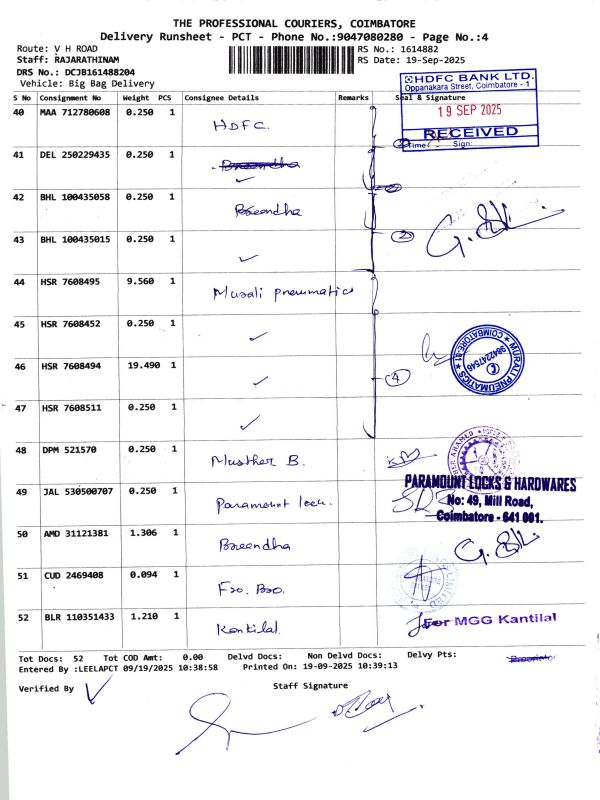 THE PROFESSIONAL COURIERS, COIMBATORE
Delivery Runsheet - PCT - Phone No.:9047080280 - Page No.:4
Route: V H ROAD
RS No.: 1614882
Staff: RAJARATHINAM
RS Date: 19-Sep-2025
DRS No.: DCJB161488204
Vehicle: Big Bag Delivery
HDFC BANK LTD.
Oppanakara Street, Coimbatore - 1
19 SEP 2025
RECEIVED
Time: Sign:
S No Consignment No Weight PCS Consignee Details Remarks Seal & Signature
40 MAA 712780608 0.250 1 HDFC.
41 DEL 250229435 0.250 1 ✓
42 BHL 100435058 0.250 1
43 BHL 100435015 0.250 1 ✓ 2
44 HSR 7608495 9.560 1 Murali pneumatics
45 HSR 7608452 0.250 1 ✓
MURALI PNEUMATICS
COIMBATORE-11
46 HSR 7608494 19.490 1 ✓ 4
47 HSR 7608511 0.250 1 ✓
48 DPM 521570 0.250 1 Musther B.
49 JAL 530500707 0.250 1 Paramount lock.
PARAMOUNT LOCKS & HARDWARES
No: 49, Mill Road,
Coimbatore - 641 001.
50 AMD 31121381 1.306 1
51 CUD 2469408 0.094 1
52 BLR 110351433 1.210 1 Kantilal.
For MGG Kantilal
Proprietor
Tot Docs: 52 Tot COD Amt: 0.00 Delvd Docs: Non Delvd Docs: Delvy Pts:
Entered By :LEELAPCT 09/19/2025 10:38:58 Printed On: 19-09-2025 10:39:13
Verified By ✓ Staff Signature